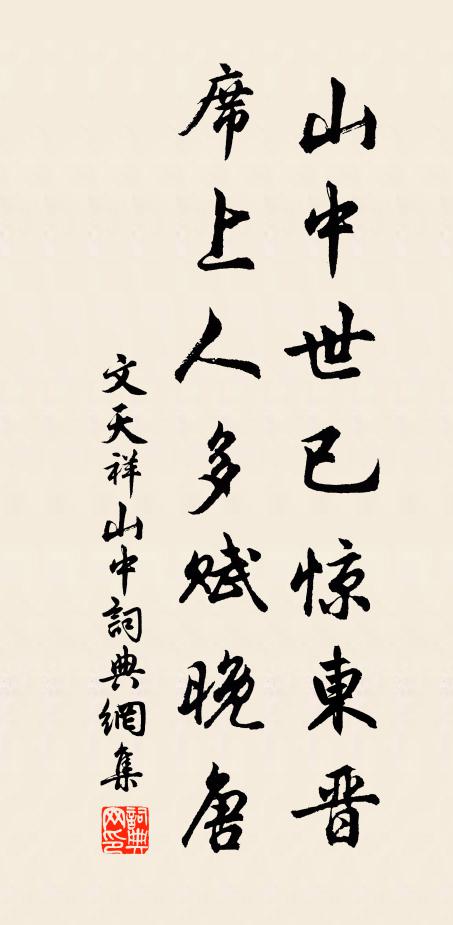 山中世已惊東晋
席上人多赋晚唐
文天祥山中詞典網集
詞典網印